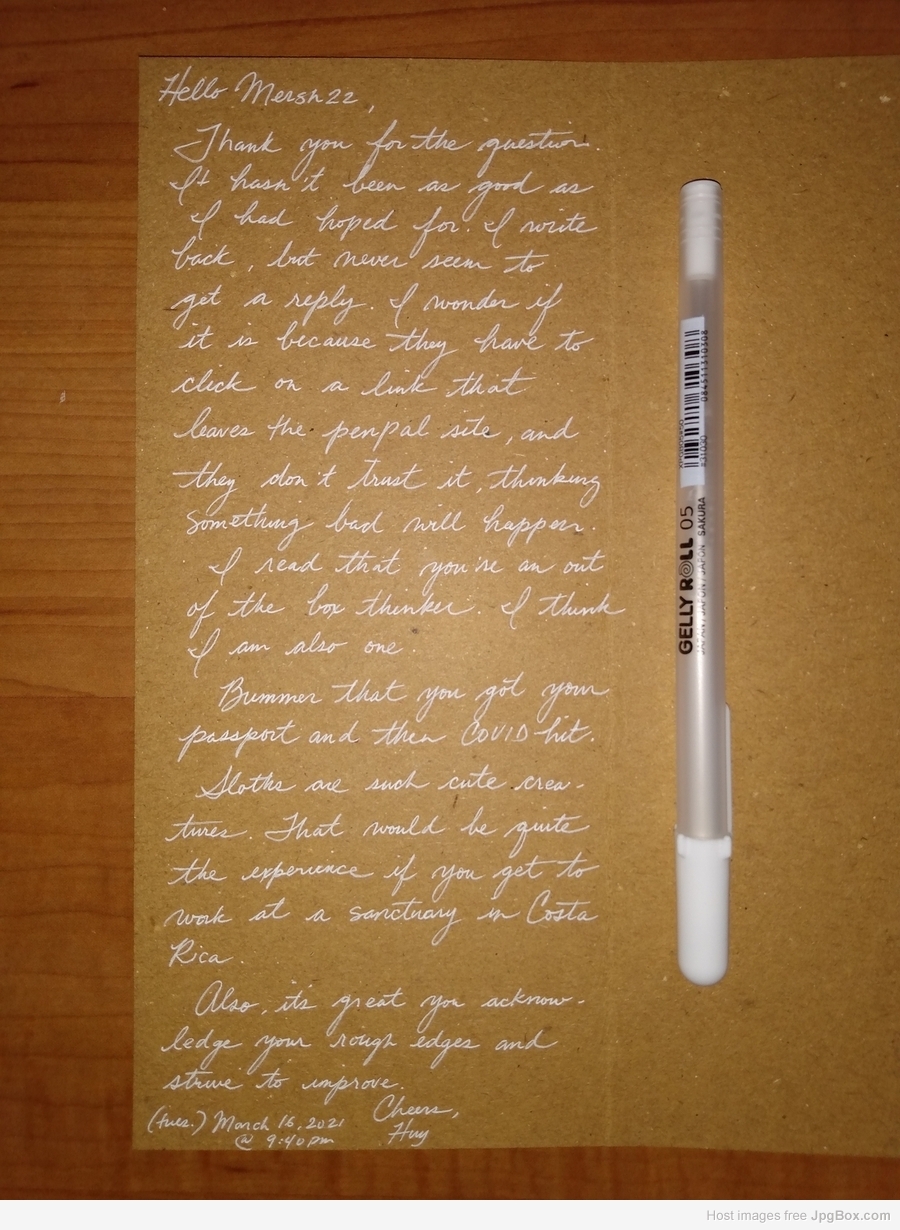 Hello Mersh22,
Thank you for the question.
It hasn't been as good as
I had hoped for. I write
back, but never seem to
get a reply. I wonder if
it is because they have to
click on a link that
leaves the penpal site, and
they don't trust it, thinking
something bad will happen.
I read that you're an out
of the box thinker. I think
I am also one.
Bummer that you got your
passport and then COVID hit.
Sloths are such cute crea-
tures. That would be quite
the experience if you get to
work at a sanctuary in Costa
Rica.
Also, it's great you acknow-
ledge your rough edges and
strive to improve.
Cheers,
Huy
(tues.) March 16, 2021
@ 9:40pm
GELLY ROLL 05
JAPAN/JAPON/JAPÓN SAKURA
084511310308
#31030
Host images free JpgBox.com